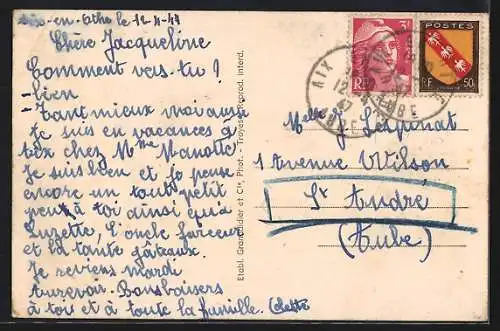 Aix-en-Othe le 12-4-47
Chère Jacqueline
Comment vas-tu ?
-bien
- Tant mieux moi aussi
Je suis en vacances à
chez Mme Manotte
Je suis bien et je pense
encore un tout petit
peu à toi ainsi qu'à
Suzette, l'oncle farceur
et la tante gâteaux.
Je reviens mardi
Aurevoir - Bonsbaisers
à toi et à toute la famille. Colette
Etabl. Grandidier et Cie, Phot. - Troyes. Reprod. interd.
POSTES
RF
3F
RF
50c
AIX
12-4
47
AUBE
Melle J
1 Avenue Wilson
St André
(Aube)